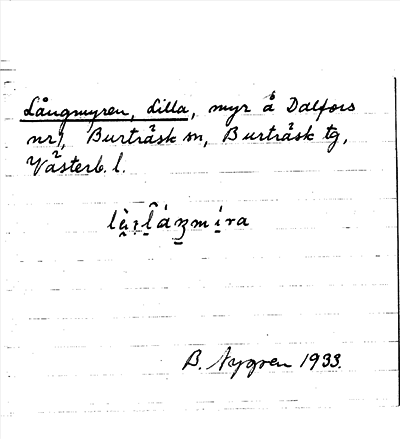 Långmyren, Lilla, myr å Dalfors
nr 1, Burträsk sn, Burträsk tg,
Västerb. l.
B. Nygren 1933.